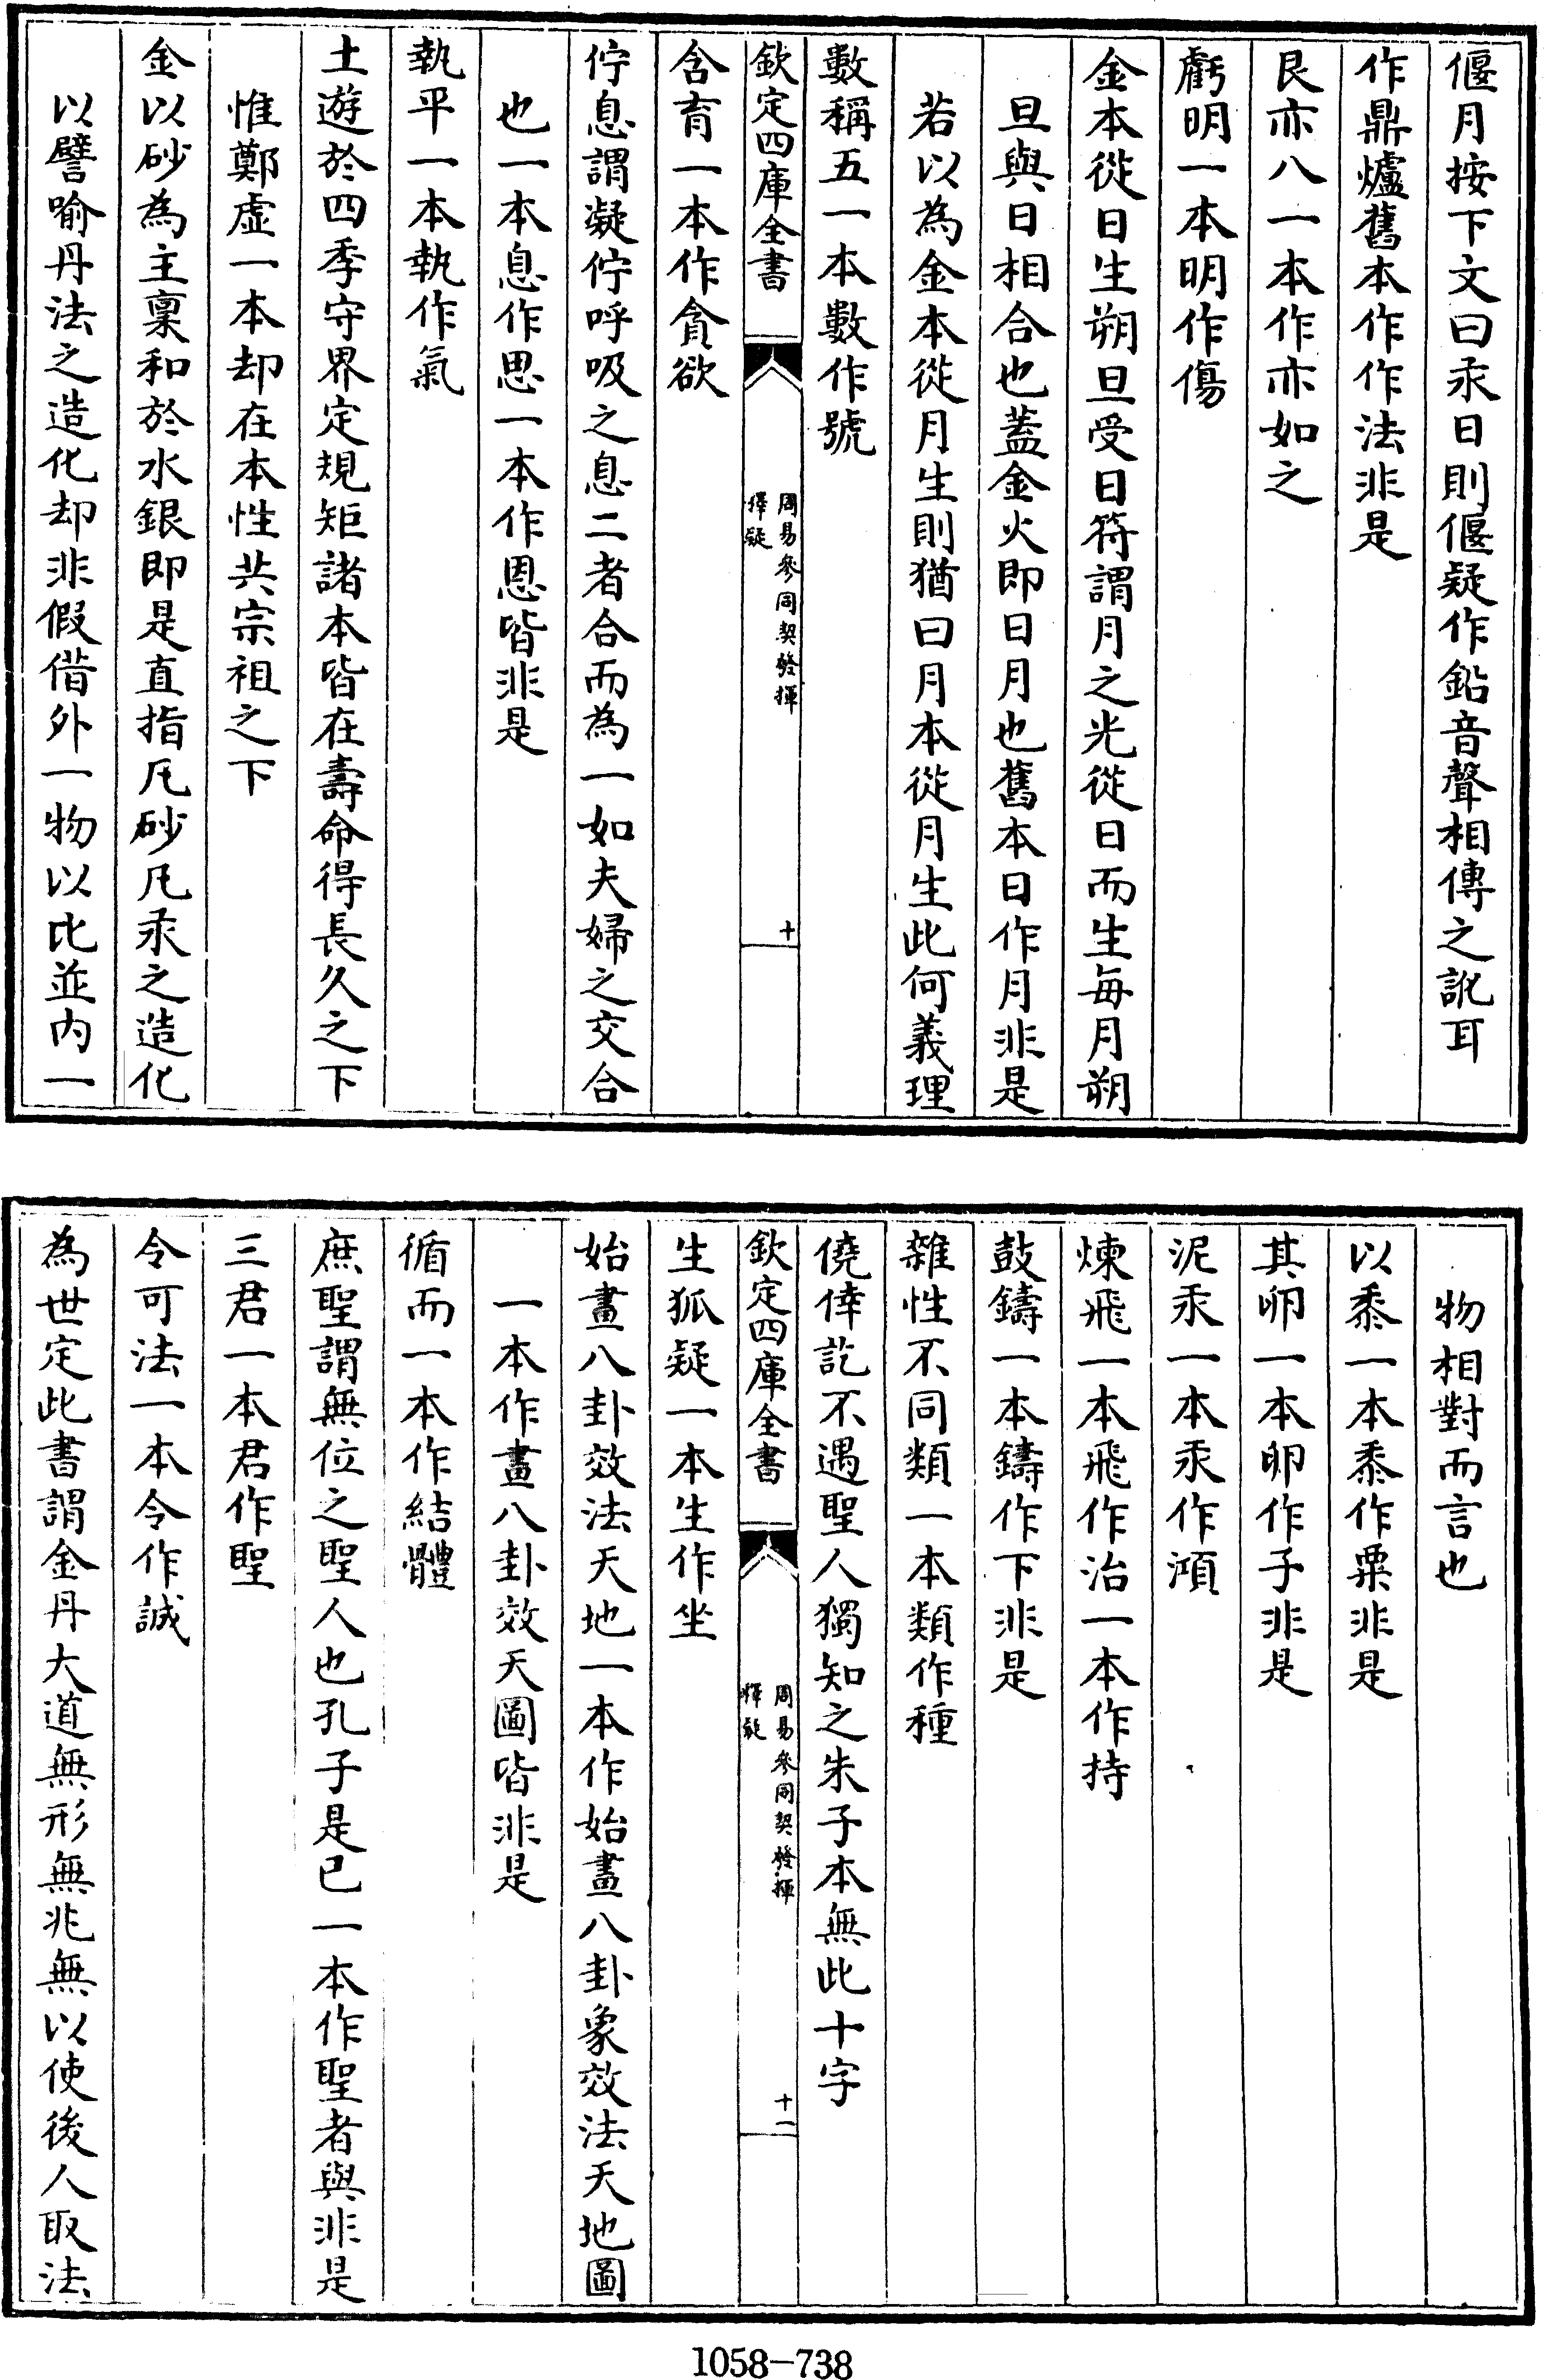 偃月按下文曰汞日則偃疑作鉛音聲相傳之訛耳
作鼎爐舊本作作法非是
艮亦八一本作亦如之
虧明一本明作傷
金本從日生朔旦受日符謂月之光從日而生每月朔
旦與日相合也葢金火即日月也舊本日作月非是
若以為金本從月生則猶曰月本從月生此何義理
數稱五一本數作號
欽定四庫全書
周易參同契發揮
釋疑
十
含育一本作貪欲
佇息謂凝佇呼吸之息二者合而為一如夫婦之交合
也一本息作思一本作恩皆非是
執平一本執作氣
土遊於四季守界定規矩諸本皆在壽命得長久之下
惟鄭虚一本却在本性共宗祖之下
金以砂為主稟和於水銀即是直指凡砂凡汞之造化
以譬喻丹法之造化却非假借外一物以比並内一
物相對而言也
以黍一本黍作粟非是
其卵一本卵作子非是
泥汞一本汞作澒
煉飛一本飛作治一本作持
鼓鑄一本鑄作下非是
雜性不同類一本類作種
僥倖訖不遇聖人獨知之朱子本無此十字
欽定四庫全書
周易參同契發揮
釋疑
十一
生狐疑一本生作坐
始畫八卦效法天地一本作始畫八卦象效法天地圖
一本作畫八卦效天圖皆非是
循而一本作結體
庶聖謂無位之聖人也孔子是已一本作聖者與非是
三君一本君作聖
令可法一本令作誠
為世定此書謂金丹大道無形無兆無以使後人取法
1058-738